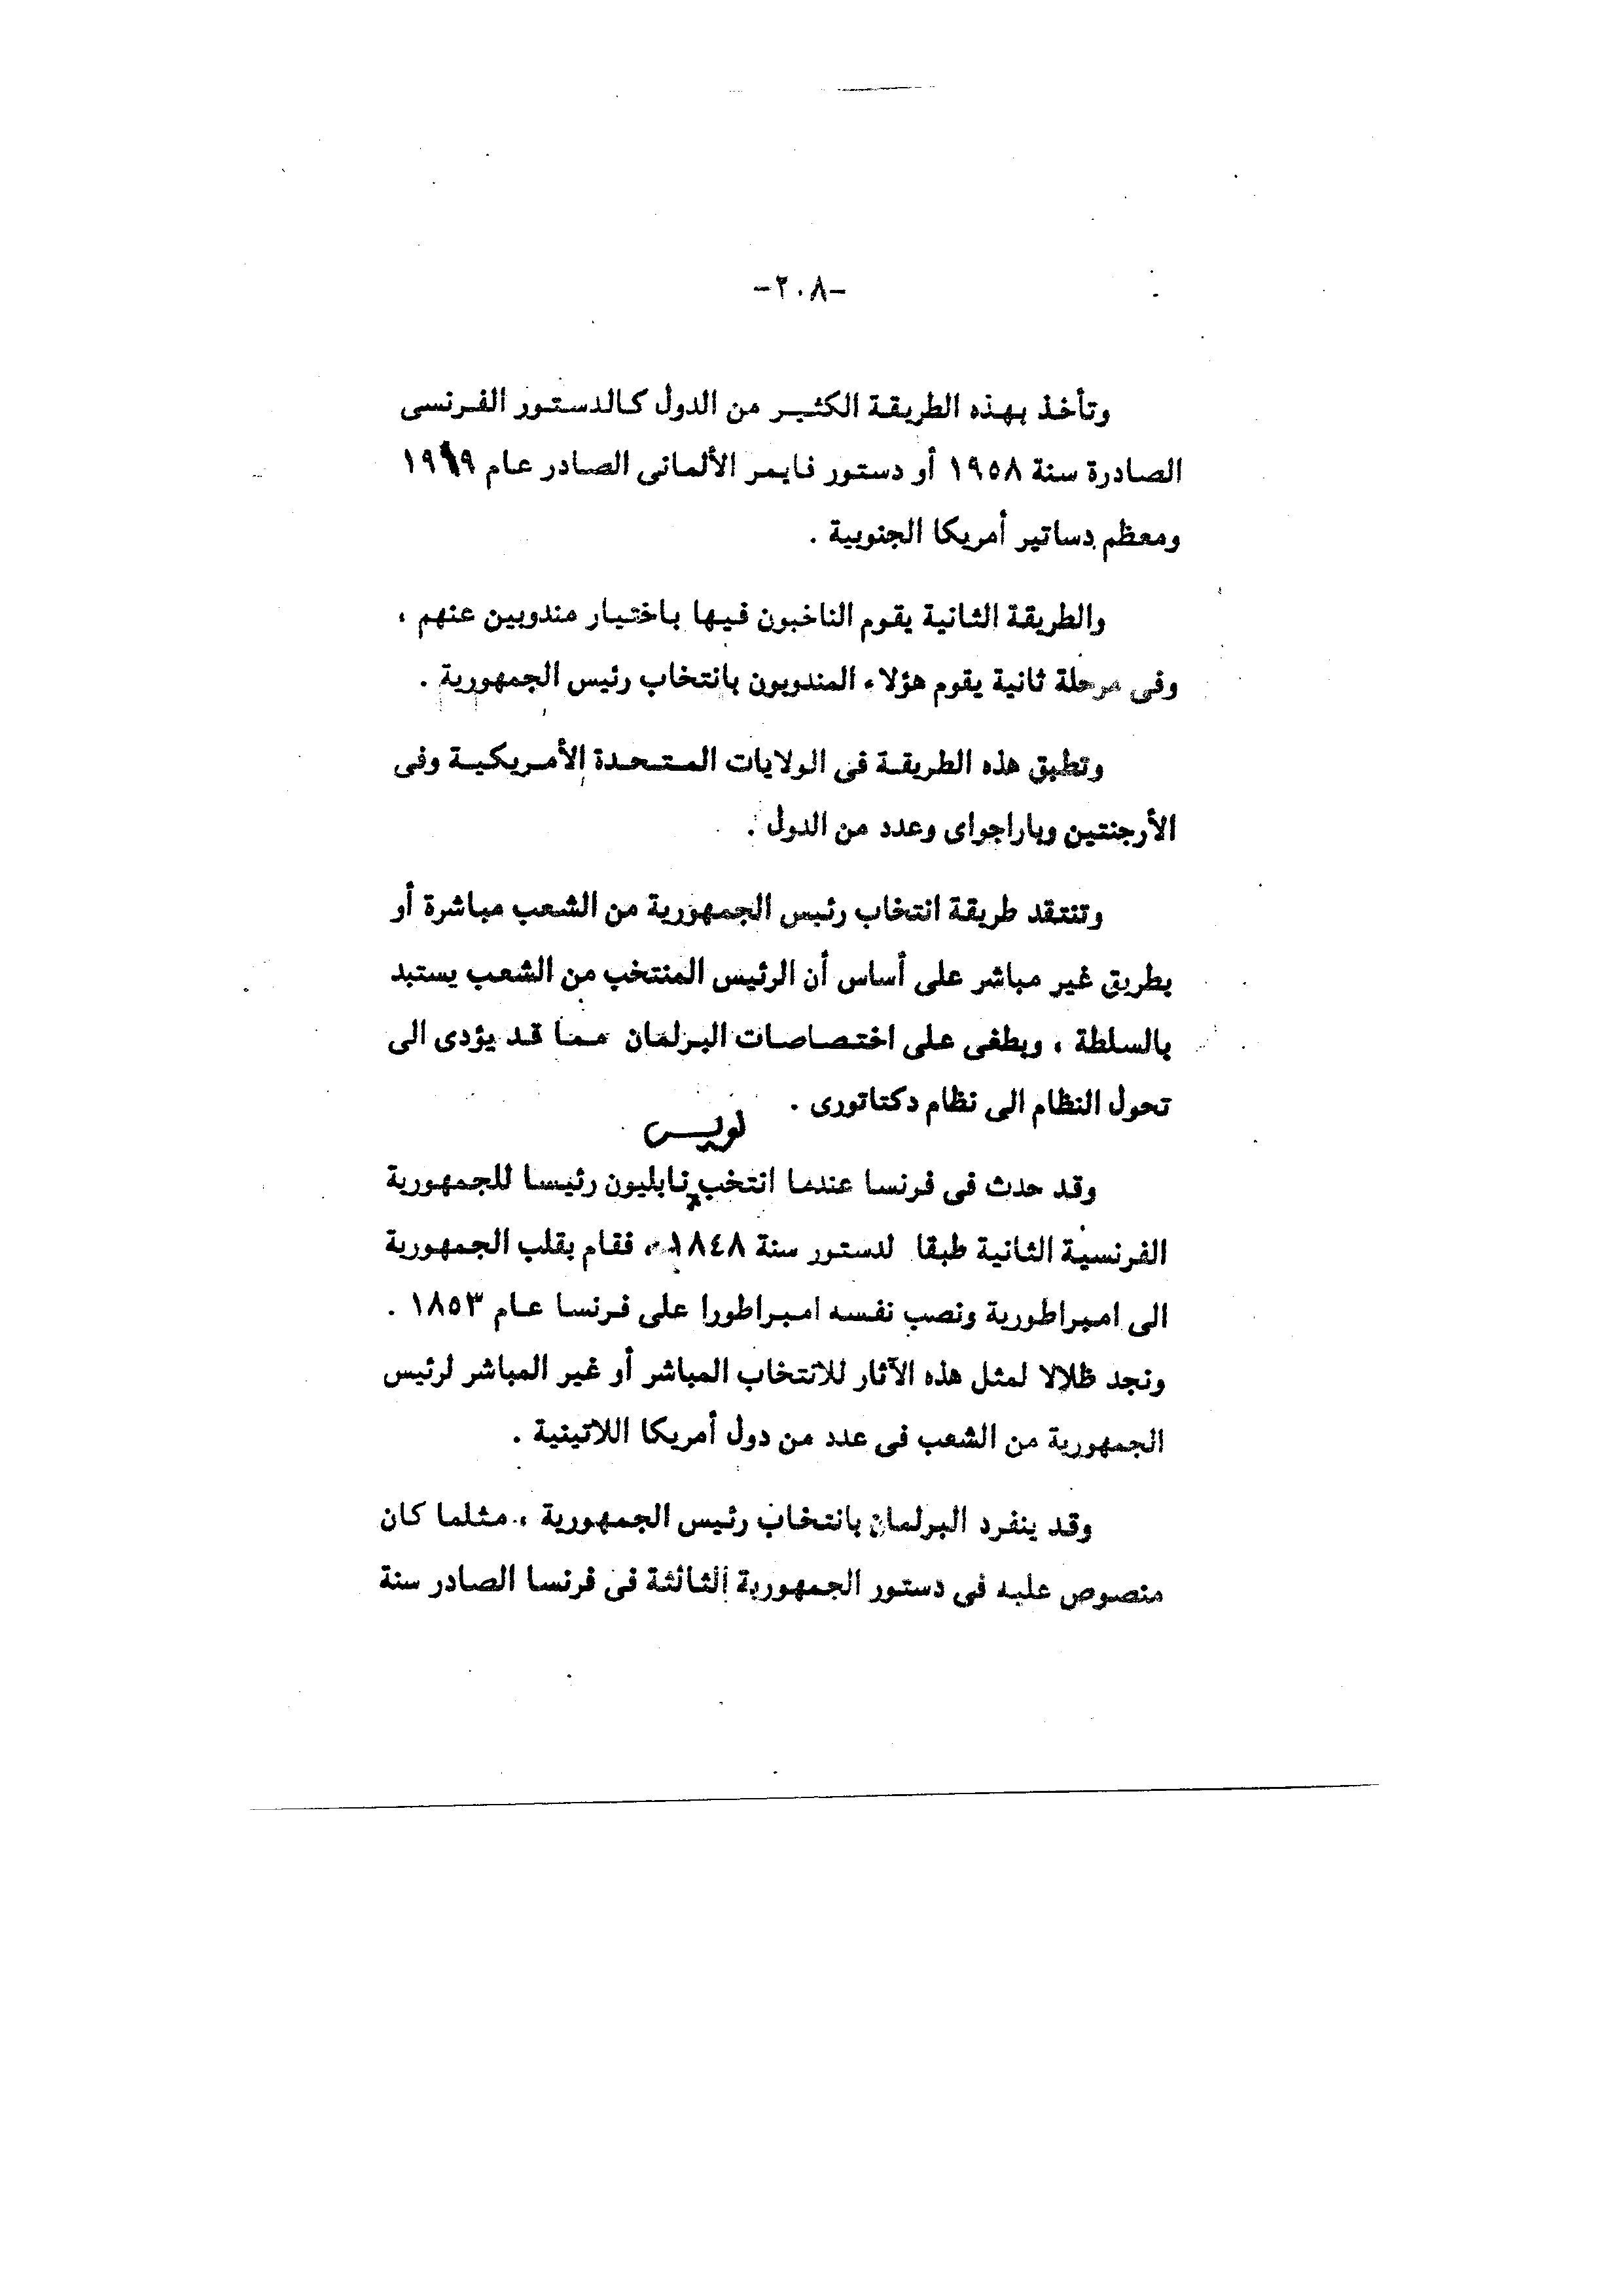 -٢٠٨-
وتأخذ بهذه الطريقة الكثير من الدول كالدستور الفرنسى
الصادرة سنة ١٩٥٨ أو دستور فايمر الألمانى الصادر عام ١٩١٩
ومعظم دساتير أمريكا الجنوبية .
والطريقة الثانية يقوم الناخبون فيها باختيار مندوبين عنهم ،
وفى مرحلة ثانية يقوم هؤلاء المندوبون بانتخاب رئيس الجمهورية .
وتطبق هذه الطريقة فى الولايات المتحدة الأمريكية وفى
الأرجنتين وباراجواى وعدد من الدول .
وتنتقد طريقة انتخاب رئيس الجمهورية من الشعب مباشرة أو
بطريق غير مباشر على أساس أن الرئيس المنتخب من الشعب يستبد
بالسلطة ، ويطغى على اختصاصات البرلمان مما قد يؤدى الى
تحول النظام الى نظام دكتاتورى .
لويس
وقد حدث فى فرنسا عندما انتخب نابليون رئيسا للجمهورية
الفرنسية الثانية طبقا لدستور سنة ١٨٤٨ ، فقام بقلب الجمهورية
الى امبراطورية ونصب نفسه امبراطورا على فرنسا عام ١٨٥٣ .
ونجد ظلالا لمثل هذه الآثار للانتخاب المباشر أو غير المباشر لرئيس
الجمهورية من الشعب فى عدد من دول أمريكا اللاتينية .
وقد ينفرد البرلمان بانتخاب رئيس الجمهورية ، مثلما كان
منصوص عليه فى دستور الجمهورية الثالثة فى فرنسا الصادر سنة